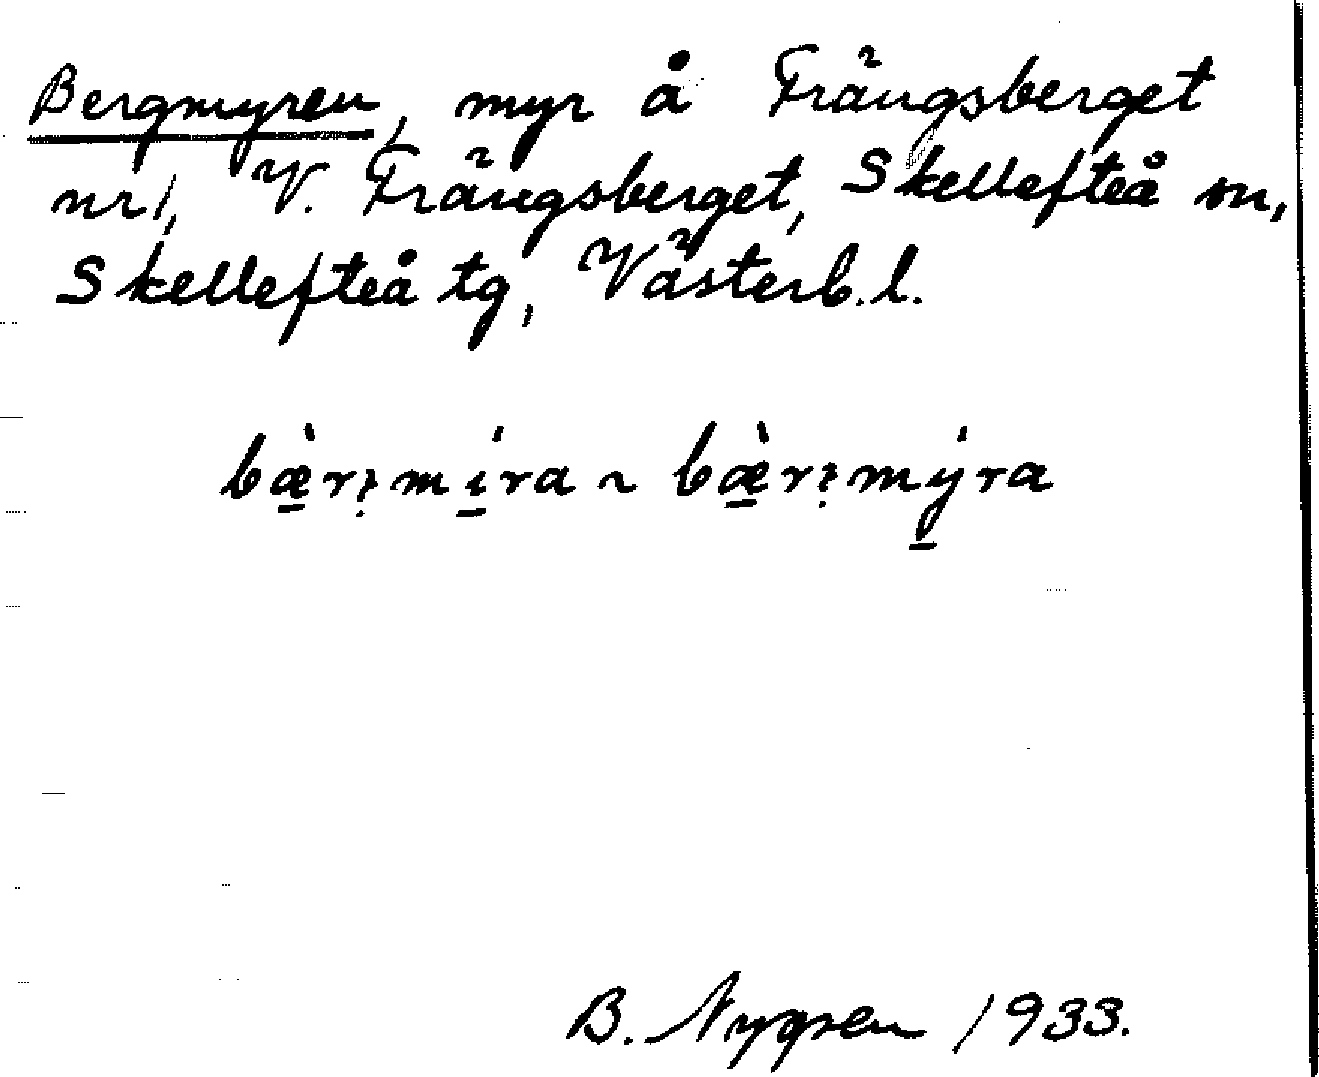 Bergmyren, myr å Trängsberget
nr 1, V. Trängsberget, Skellefteå sn,
Skellefteå tg, Västerb.l.
bæ̠̀rꝛmí̠ra ~ bæ̠̀rꝛmý̠ra
B. Nygren 1933.